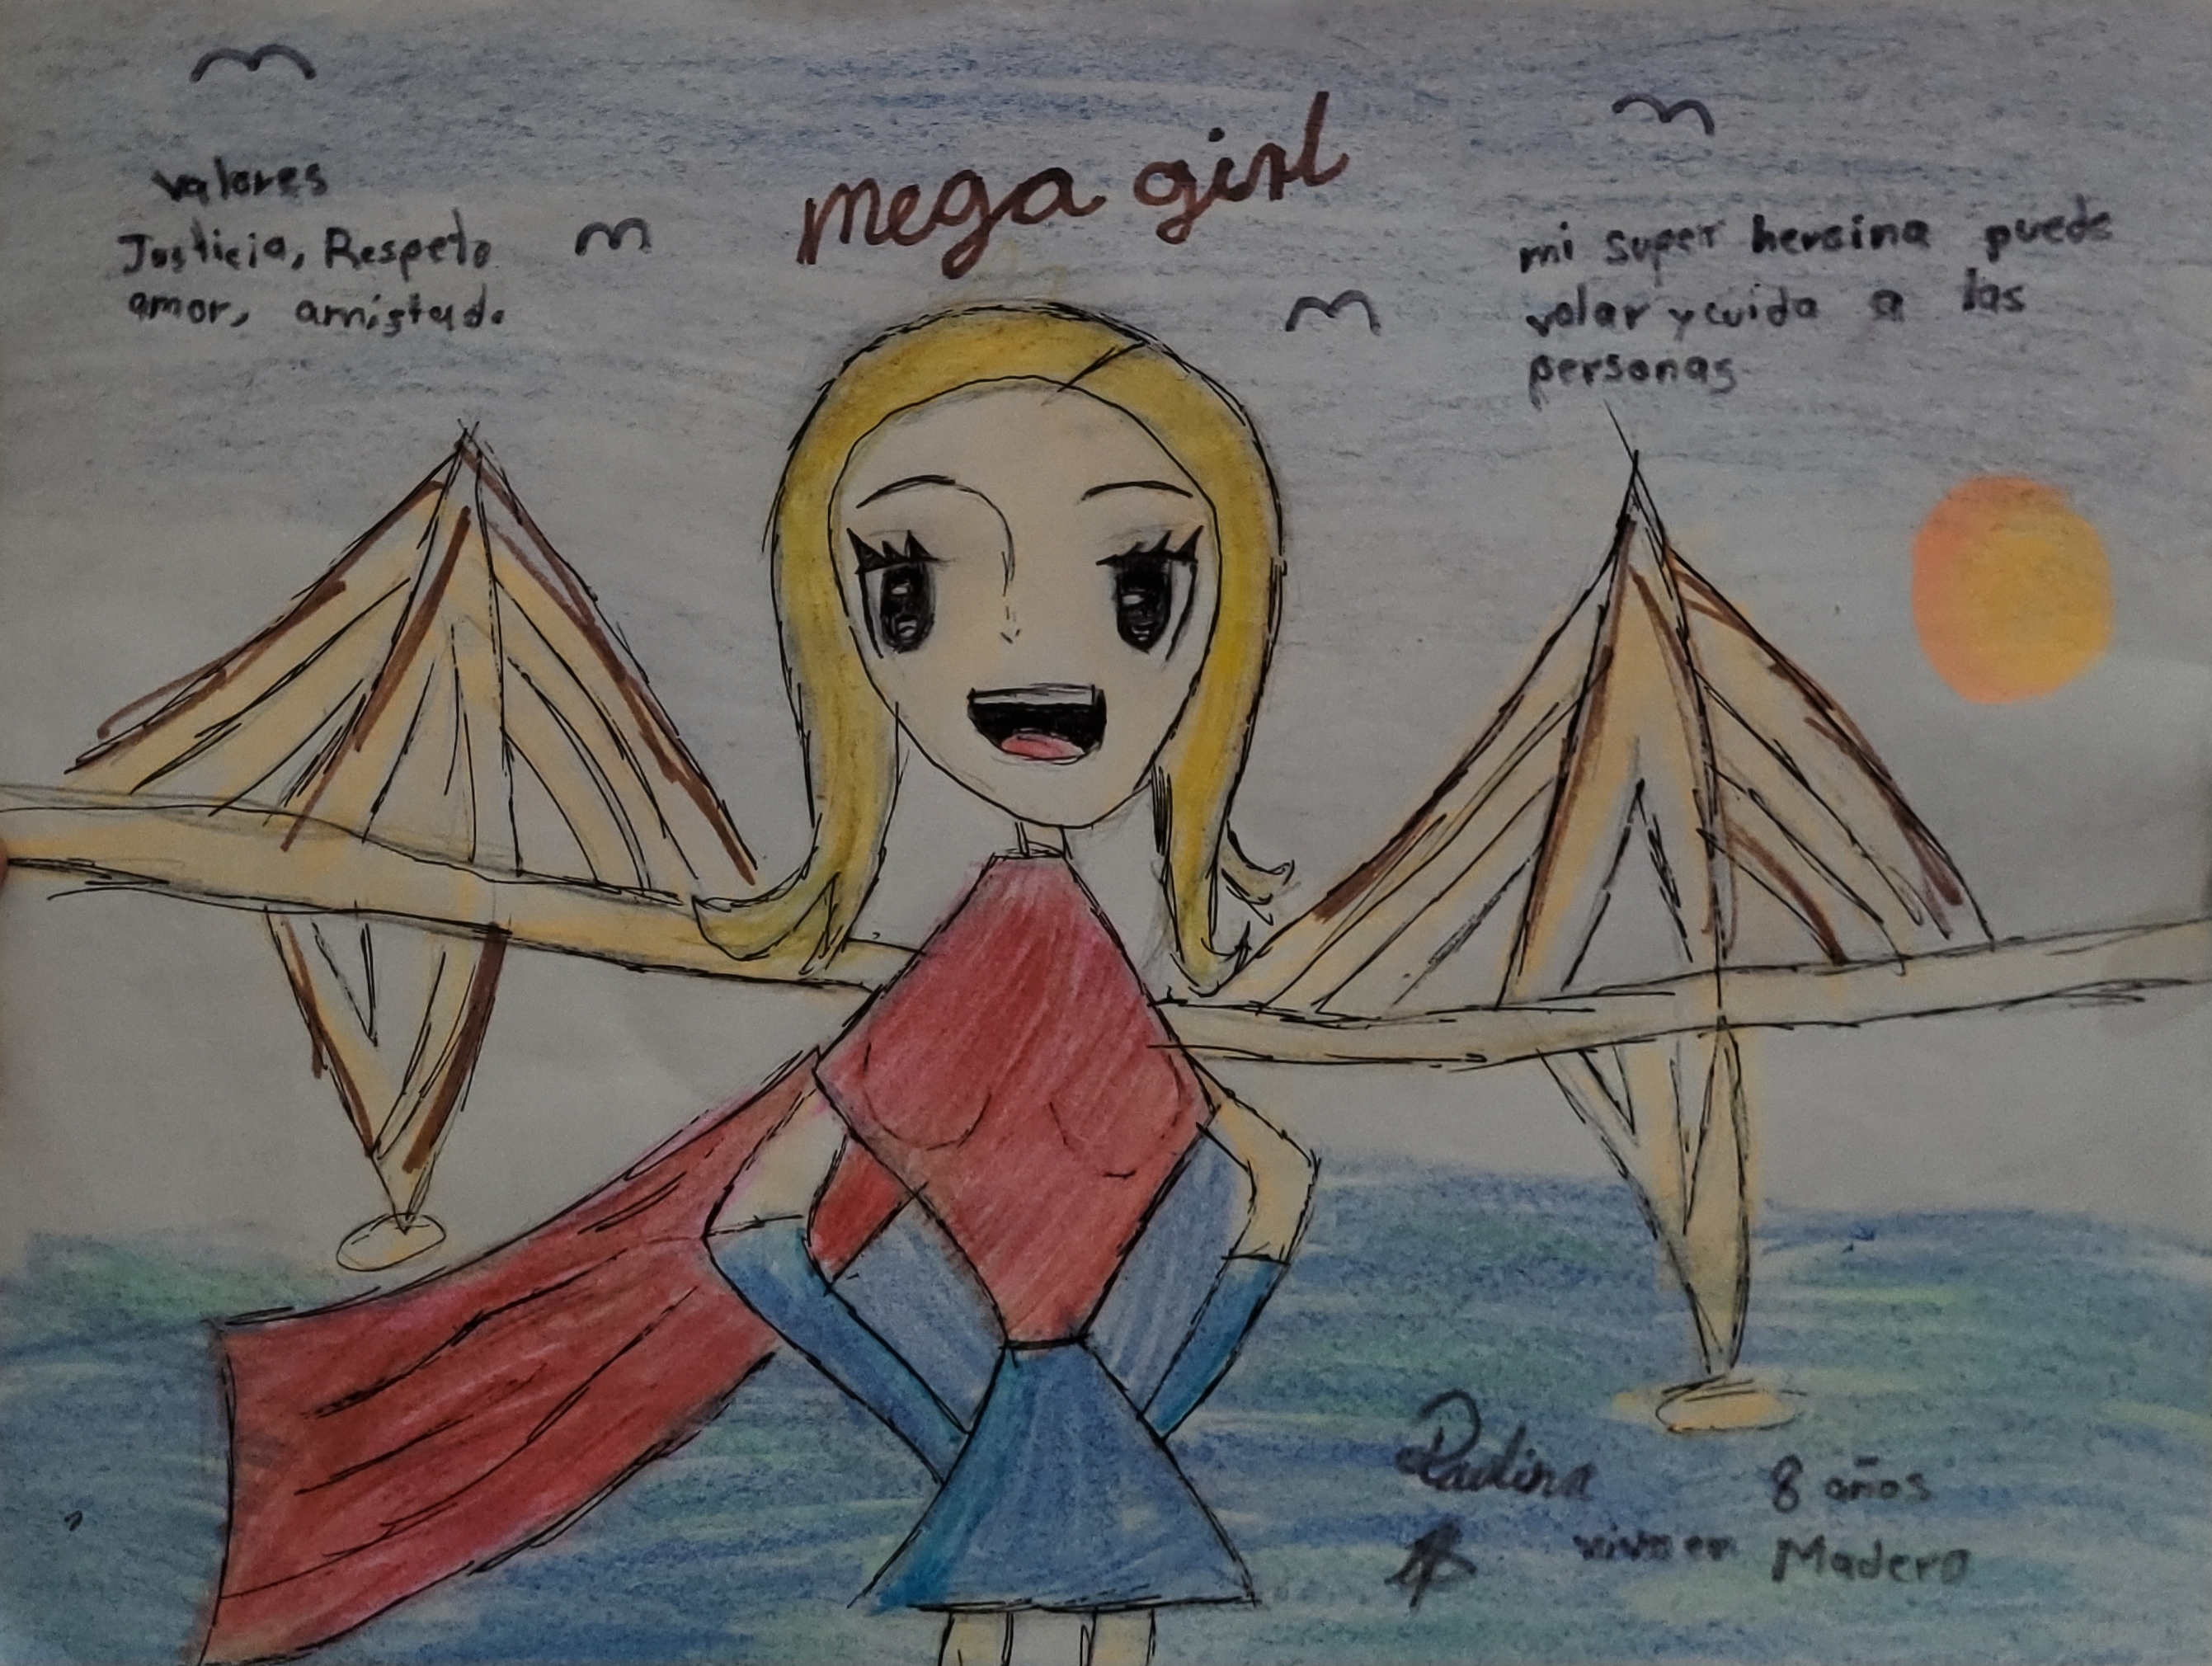 mega girl
valores
Justicia, Respeto
amor, amistad.
mi super heroina puede
volar y cuida a las
personas
Paulina 8 años
vivo en Madero